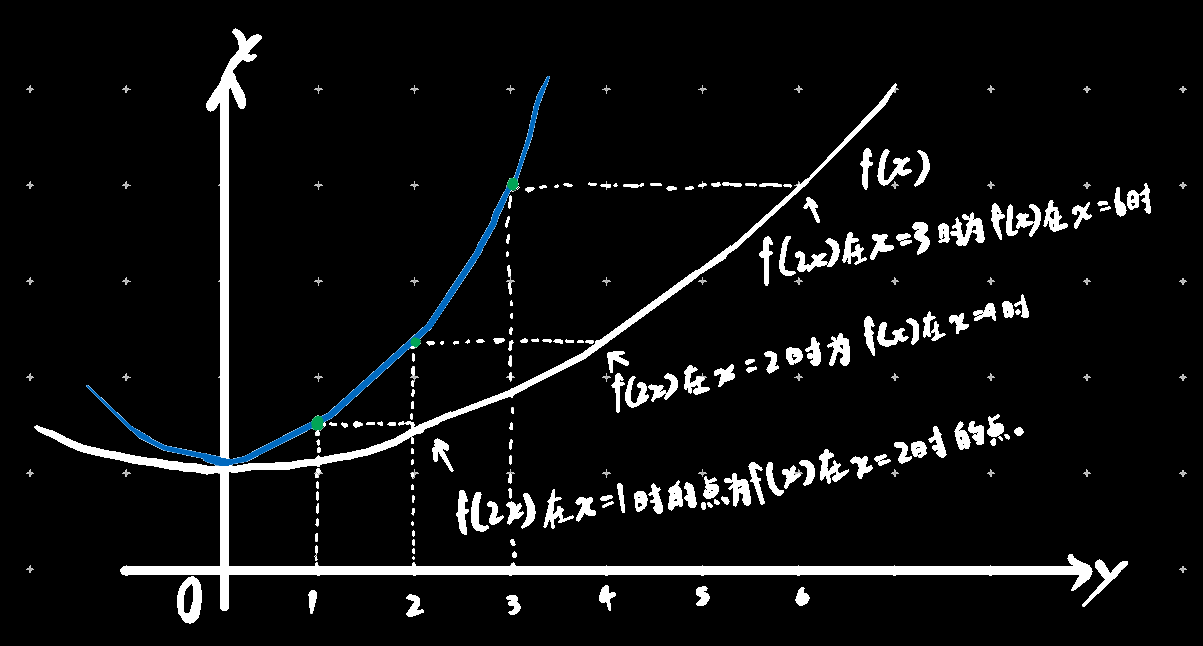 x
f(x)
f(2x)在x=3时为f(x)在x=6时
f(2x)在x=2时为f(x)在x=4时
f(2x)在x=1时的点为f(x)在x=2时的点。
y
0 1 2 3 4 5 6